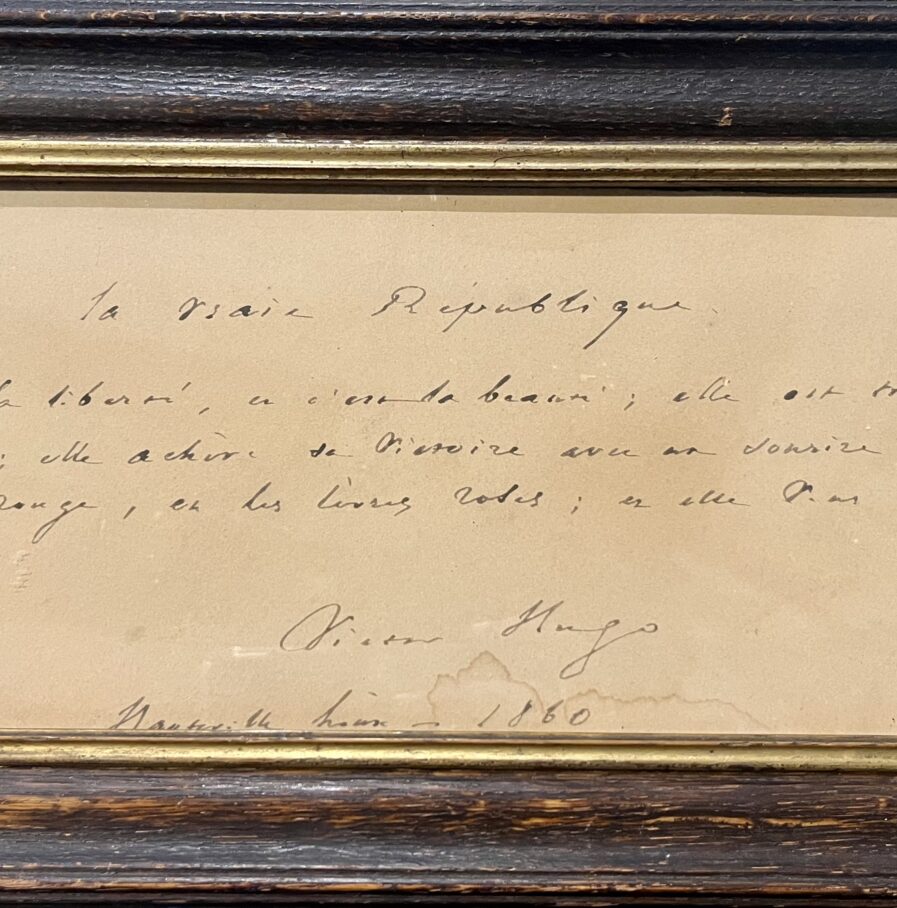 la vraie République
la liberté, et c'est la beauté ; elle est
; elle achève sa victoire avec un sourire
rouge, et les lèvres roses ; et elle veut
Victor Hugo
Hauteville house – 1860